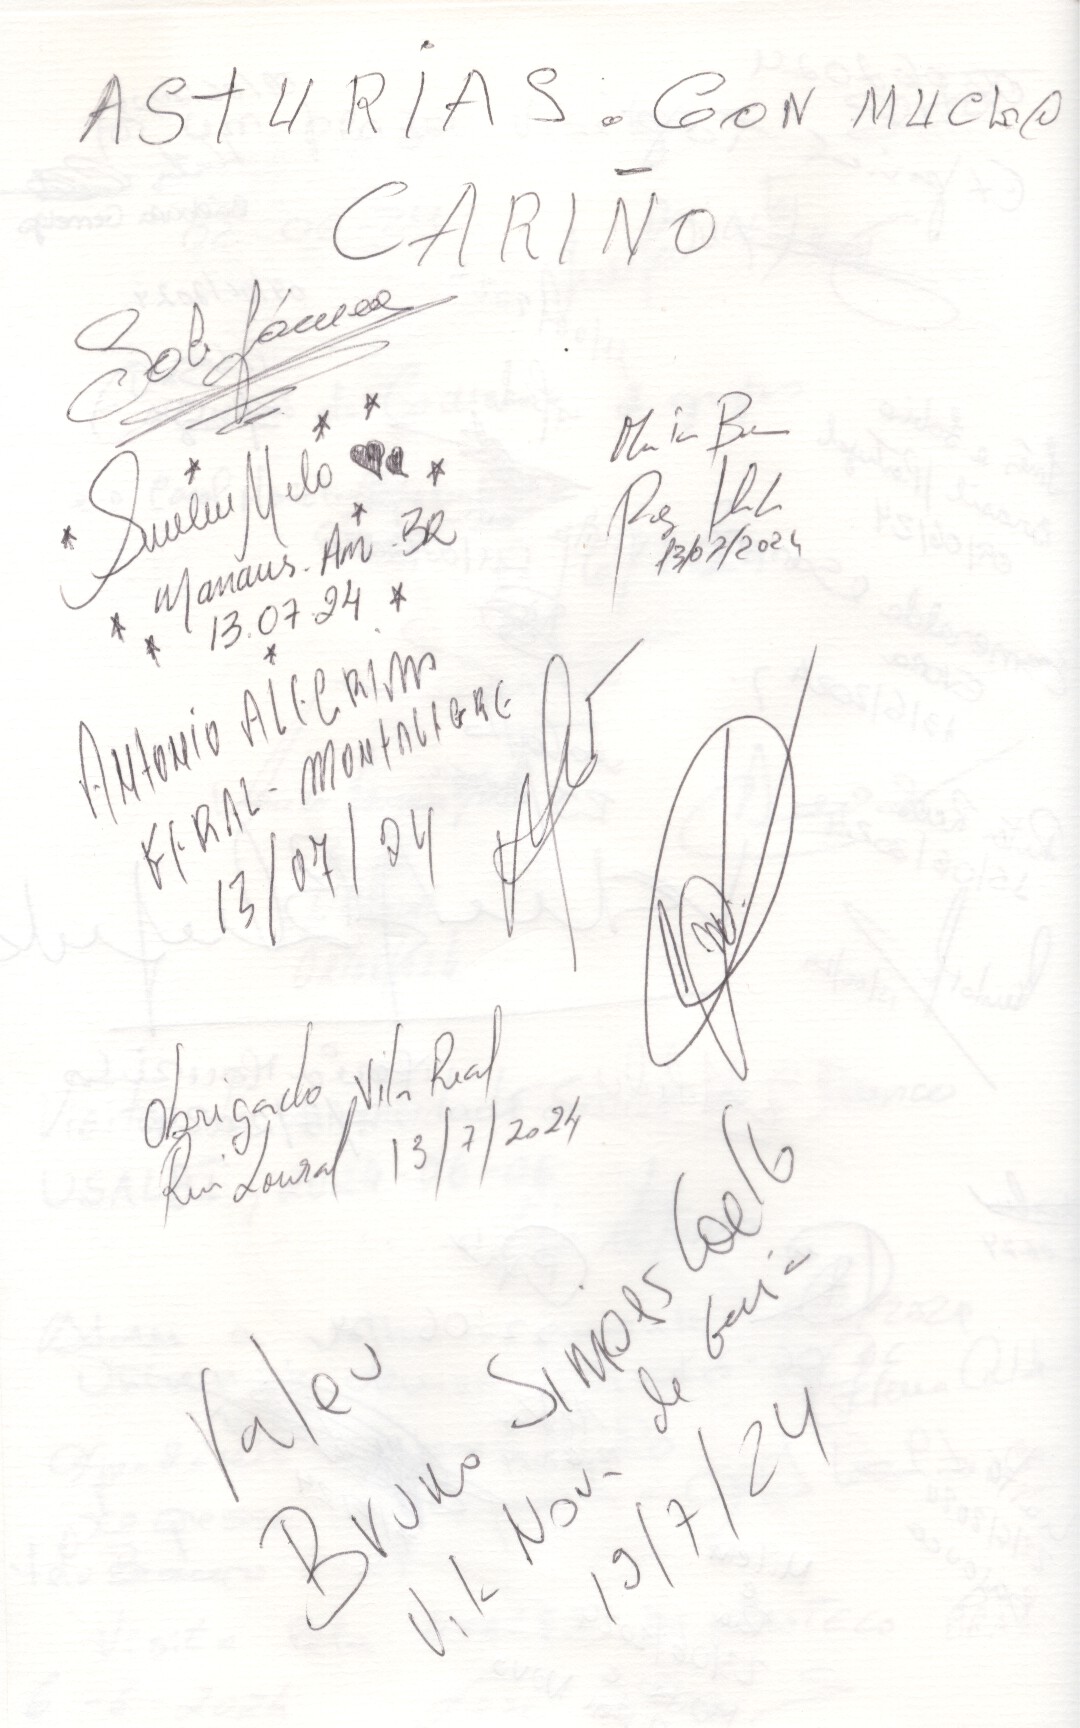 ASTURIAS. CON MUCHO
CARIÑO
Melo
Manaus. AM. BR
13.07.24
Maria
13/07/2024
ANTONIO ALEGRIM
GERAL - MONTALEGRE
13/07/24
Obrigado Vila Real
Rui 13/7/2024
Valeu
Bruno SIMÕES Coelho
Vila Nova de Gaia
19/7/24